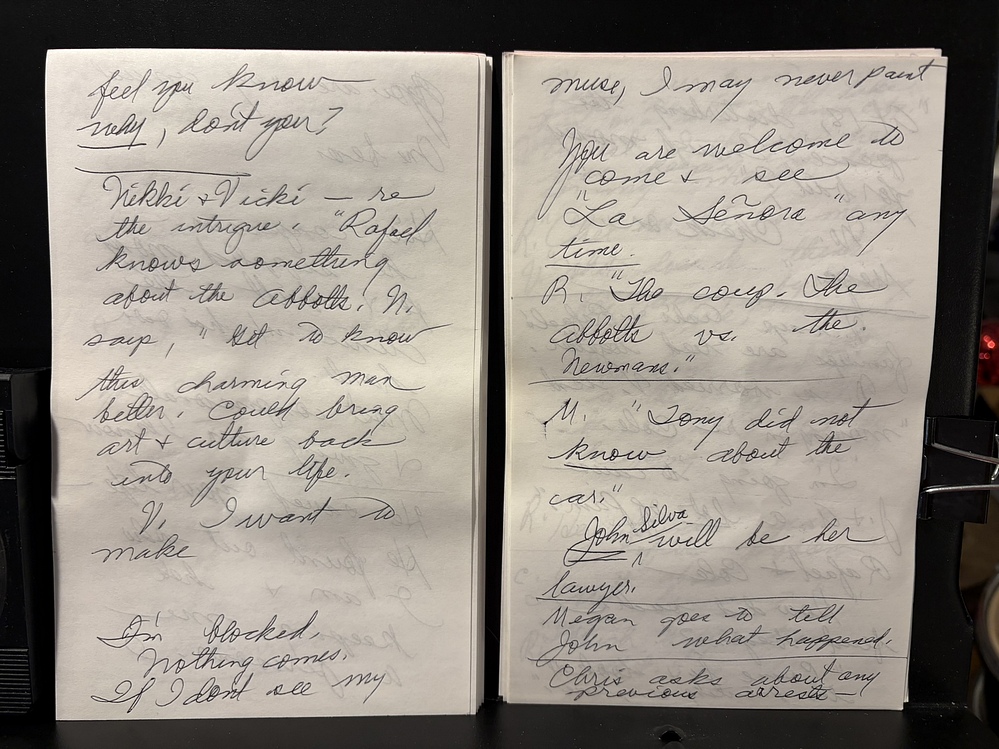 feel you know
why, don't you?
Nikki & Vicki — re
the intrigue. "Rafael
knows something
about the Abbotts. N.
says, "Get to know
this charming man
better. Could bring
art & culture back
into your life.
V. I want to
make
I'm blocked.
Nothing comes.
If I don't see my
muse, I may never paint
You are welcome to
come & see
"La Señora" any
time.
R. "The coup. The
Abbotts vs. the
Newmans."
M. "Tony did not
know about the
car."
John Silva will be her
lawyer.
Megan goes to tell
John what happened.
Chris asks about any
previous arrests—